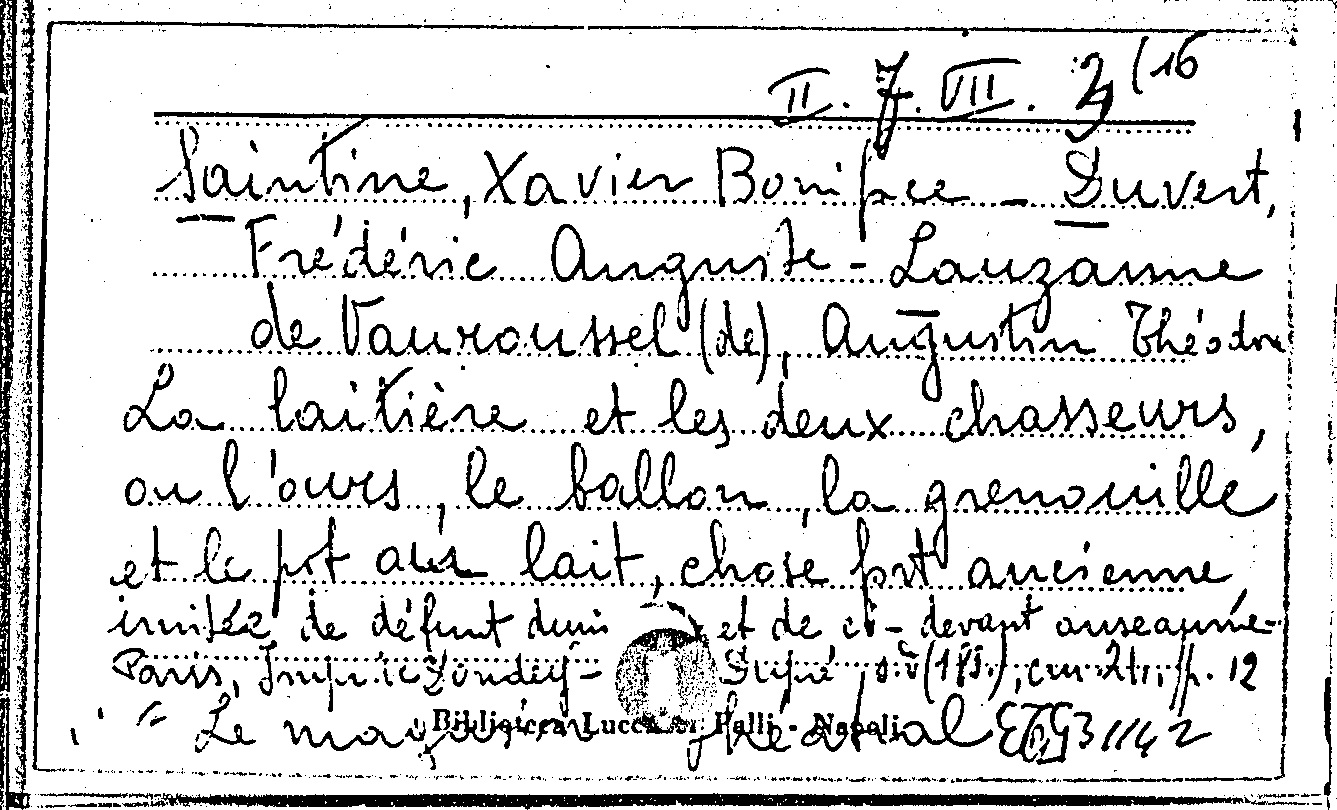 II. 7. VII. 3 (16
Saintine, Xavier Boniface - Duvert,
Frédéric Auguste - Lauzanne
de Vauroussel (de), Augustin Théodore
La laitière et les deux chasseurs,
ou l'ours, le ballon, la grenouille
et le pot au lait, chose fort ancienne
imitée de défunt duni et de ci-devant anseaume-
Paris, Imp.ie Dondey- Dupré, s.d. (18..), cm. 21, p. 12
" Le magasin théatral
Biblioteca Lucchesi Palli - Napoli